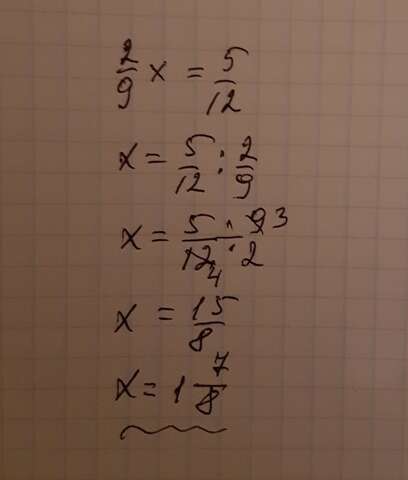 2/9 x = 5/12
x = 5/12 : 2/9
x = 5 · 9 3 / 12 4 · 2
x = 15/8
x = 1 7/8